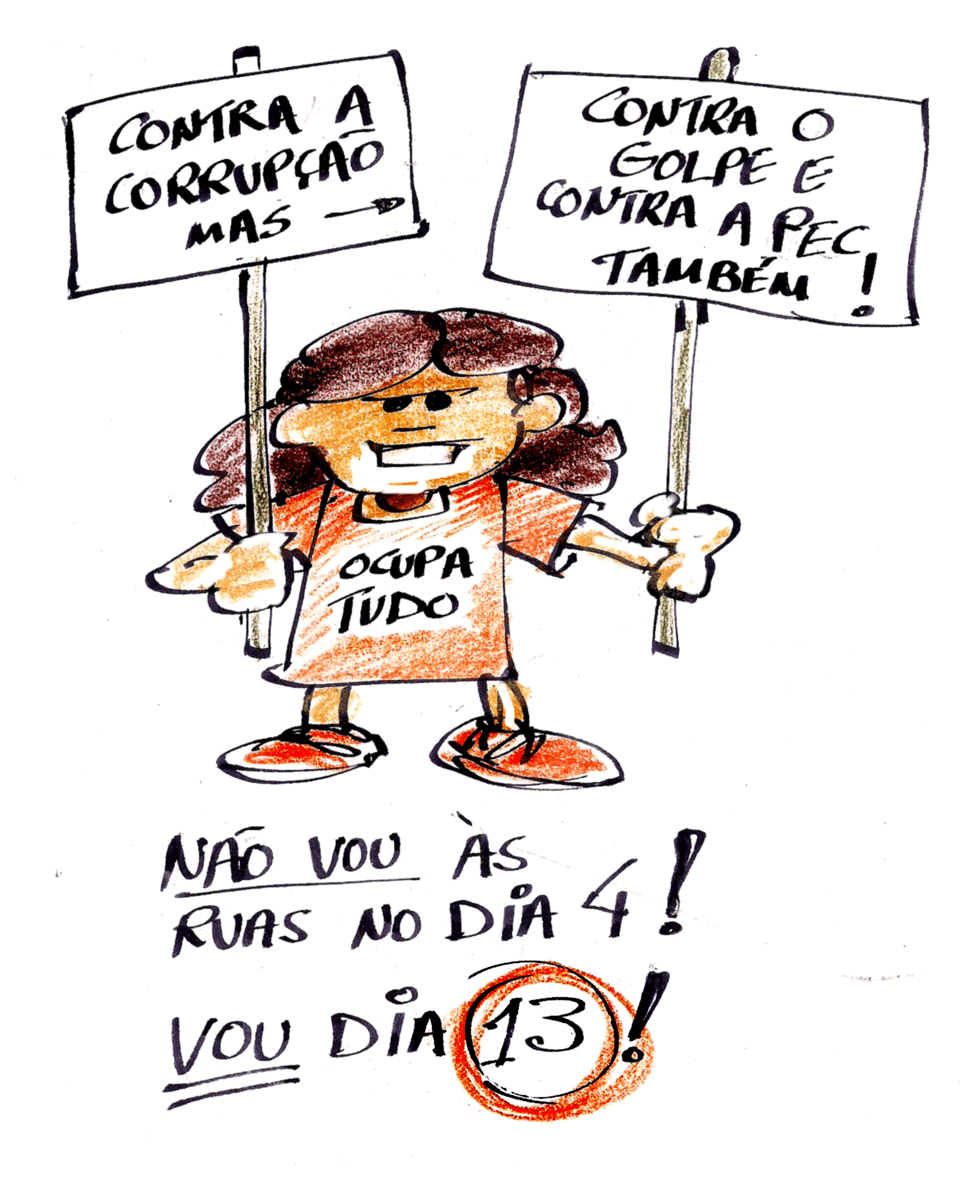 CONTRA A
CORRUPÇÃO
MAS →
CONTRA O
GOLPE E
CONTRA A PEC
TAMBÉM!
OCUPA
TUDO
NÃO VOU ÀS
RUAS NO DIA 4!
VOU DIA 13!